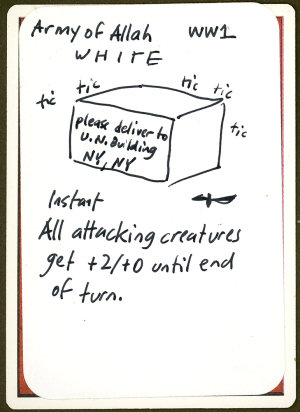 Army of Allah WW1
WHITE
tic tic tic
tic tic
please deliver to
U.N. Building
NY, NY
Instant
All attacking creatures
get +2/+0 until end
of turn.